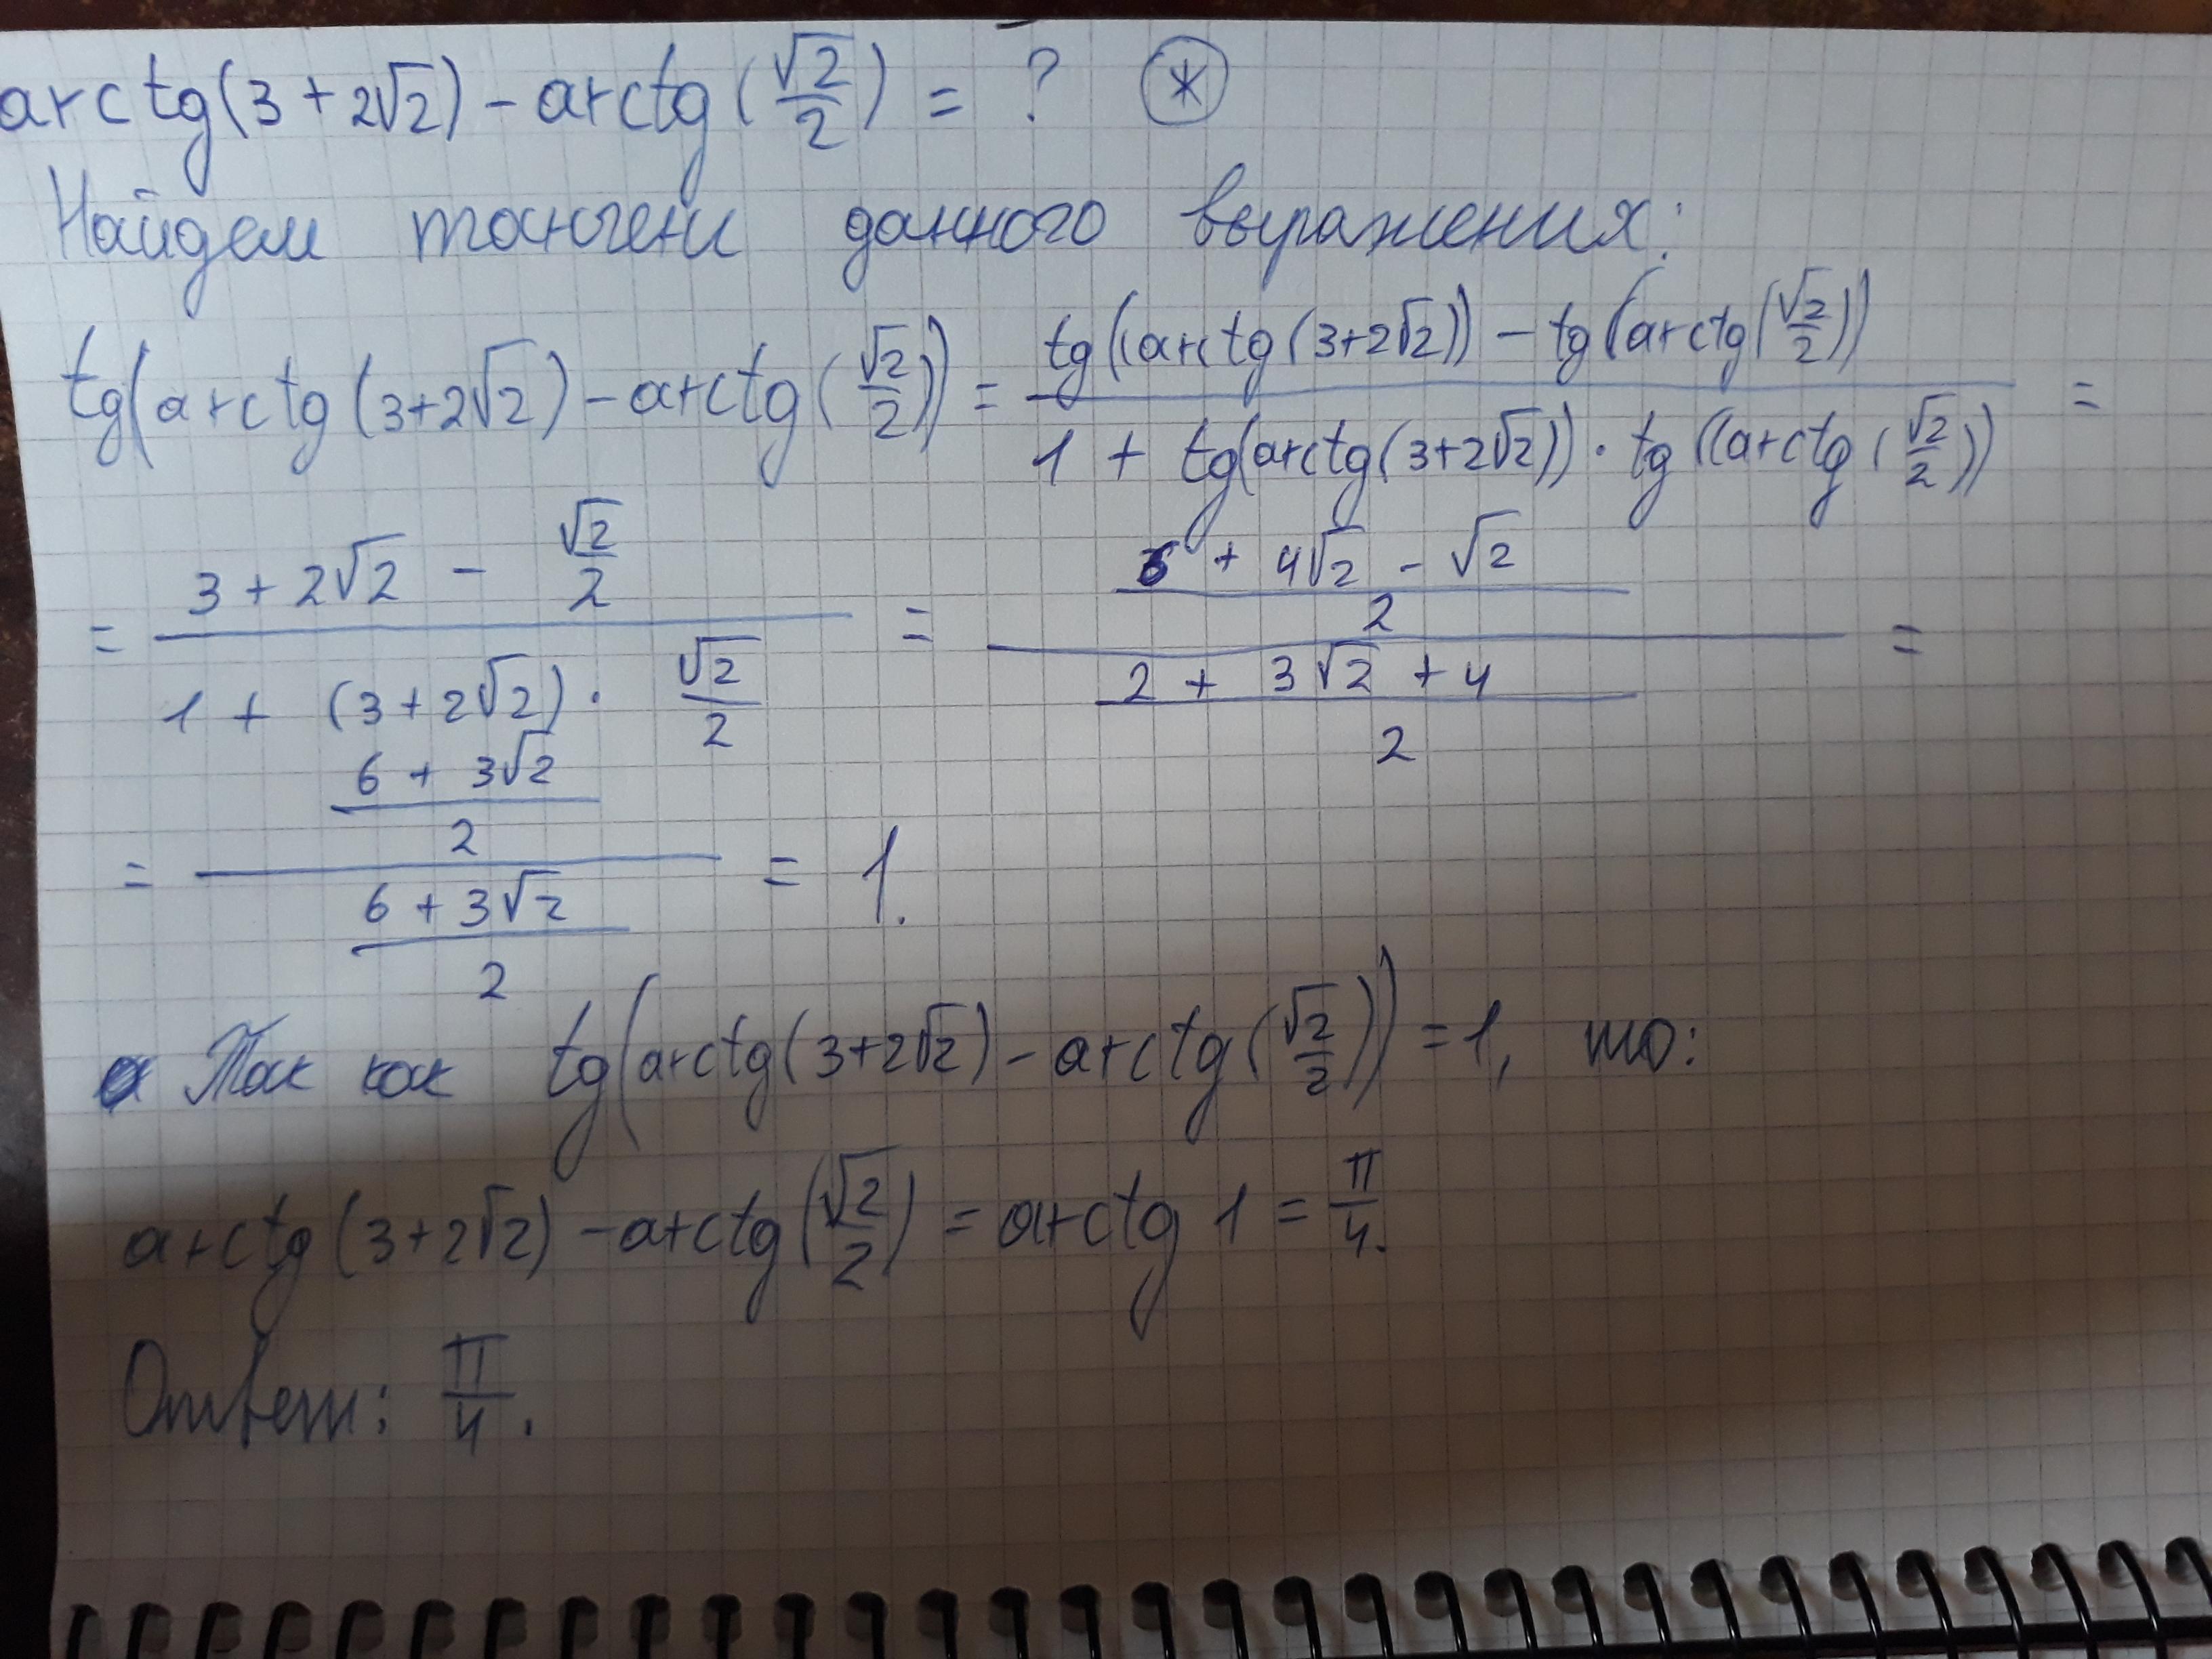 arctg(3 + 2√2) - arctg(√2/2) = ? *
Найдем тангенс данного выражения:
tg(arctg(3+2√2) - arctg(√2/2)) = (tg((arctg(3+2√2)) - tg(arctg(√2/2))) / (1 + tg(arctg(3+2√2)) · tg((arctg(√2/2))) =
= (3 + 2√2 - √2/2) / (1 + (3+2√2) · √2/2) = ((6 + 4√2 - √2)/2) / ((2 + 3√2 + 4)/2) =
= ((6 + 3√2)/2) / ((6 + 3√2)/2) = 1.
Так как tg(arctg(3+2√2) - arctg(√2/2)) = 1, то:
arctg(3+2√2) - arctg(√2/2) = arctg 1 = π/4.
Ответ: π/4.